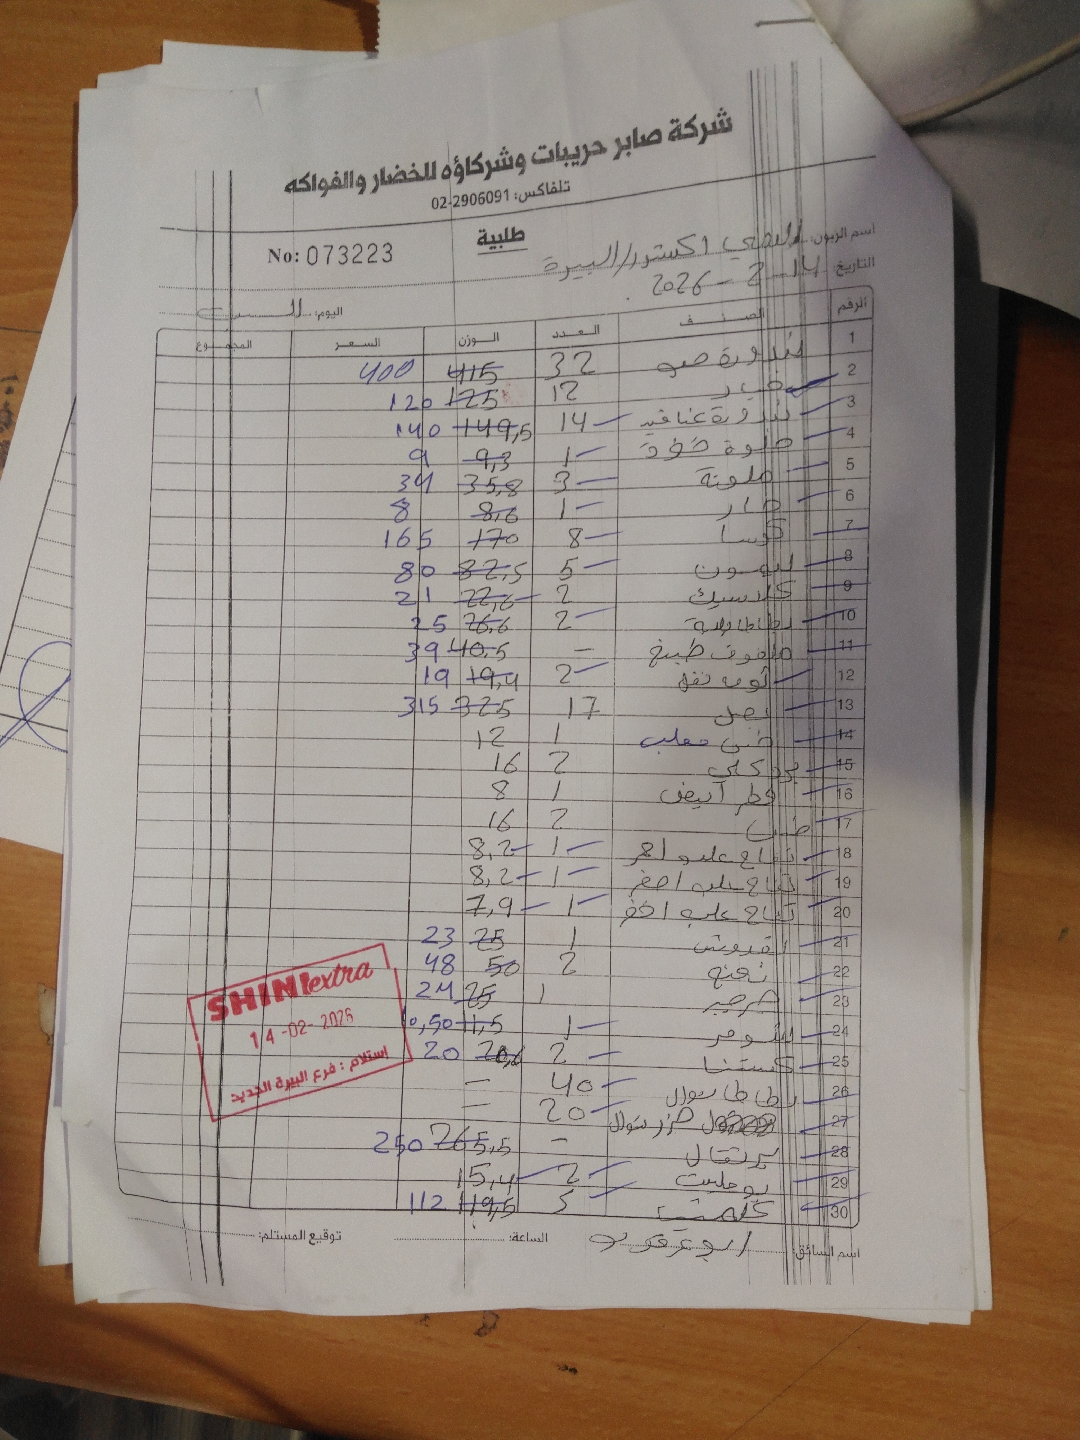 شركة صابر حريبات وشركاؤه للخضار والفواكه
تلفاكس: 2906091-02
طلبية
No: 073223
اسم الزبون: اكسترا/البيرة
التاريخ: 14-2-2026
اليوم: السبت
الرقم الصنف العدد الوزن السعر المجموع
1 بندورة 32 415 400
2 خيار 12 125 120
3 بندورة عناقيد 14 149,5 140
4 حلوة 1 9,3 9
5 ملونة 3 35,8 34
6 حار 1 8,6 8
7 كوسا 8 170 165
8 ليمون 5 82,5 80
9 كلاسيك 2 22,6 21
10 بطاطا 2 26,6 25
11 ملفوف طبيخ - 40,5 39
12 ثوم 2 19,4 19
13 بصل 17 325 315
14 معلب 1 12
15 بروكلي 2 16
16 فطر أبيض 1 8
17 2 16
18 تفاح علب احمر 1 8,2
19 تفاح علب اصفر 1 8,2
20 تفاح علب اخضر 1 7,9
21 بقدونس 1 25 23
22 نعنع 2 50 48
23 جرجير 1 25 24
24 شومر 1 11,5 10,50
25 كستنا 2 20
26 بطاطا سوال 40 -
27 جزر سوال 20 -
28 برتقال - 265,5 250
29 بوملية 2 15,4
30 كلمنتينا 5 119,5 112
SHINI extra
14-02-2026
استلام: فرع البيرة الجديد
اسم السائق: الساعة: توقيع المستلم: